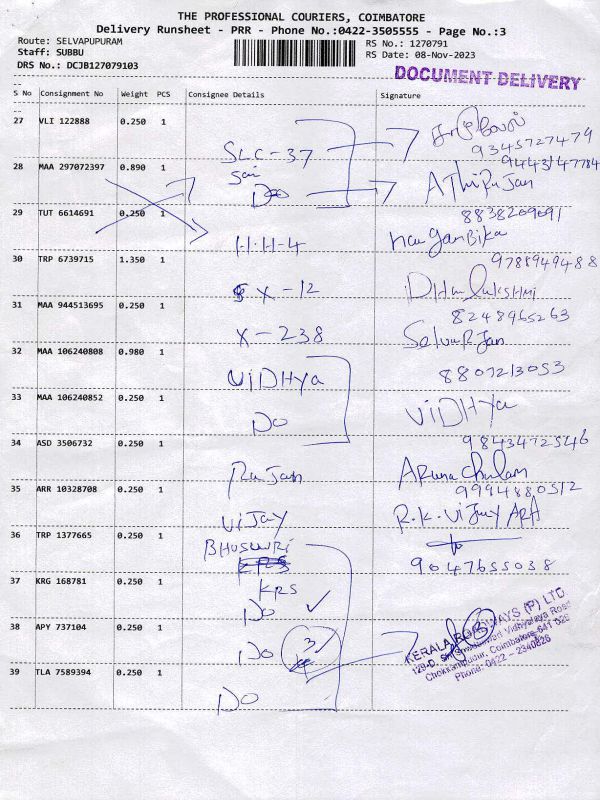 THE PROFESSIONAL COURIERS, COIMBATORE
Delivery Runsheet - PRR - Phone No.:0422-3505555 - Page No.:3
Route: SELVAPUPURAM
RS No.: 1270791
Staff: SUBBU
RS Date: 08-Nov-2023
DRS No.: DCJB127079103
DOCUMENT DELIVERY
S No Consignment No Weight PCS Consignee Details Signature
27 VLI 122888 0.250 1
SLC-37 9345727479
28 MAA 297072397 0.890 1
Sai
Do AThiRajan
29 TUT 6614691 0.250 1 8838209091
H.H-4 nauganbika
30 TRP 6739715 1.350 1 9788949488
X-12 DHanlakshmi
31 MAA 944513695 0.250 1 8248965263
X-238 SelvaRjan
32 MAA 106240808 0.980 1
ViDHya 8807213053
33 MAA 106240852 0.250 1
Do ViDHya
34 ASD 3506732 0.250 1 9843472546
Rajan ARunachulam
35 ARR 10328708 0.250 1 9994880512
ViJay R.K.ViJay
36 TRP 1377665 0.250 1
BHUSUVRI
9047655038
37 KRG 168781 0.250 1
KRS
Do
38 APY 737104 0.250 1
Do 3
KERALA ROADWAYS (P) LTD
Chokkampudur, Coimbatore-641
Phone: 0422 - 2340826
39 TLA 7589394 0.250 1
Do